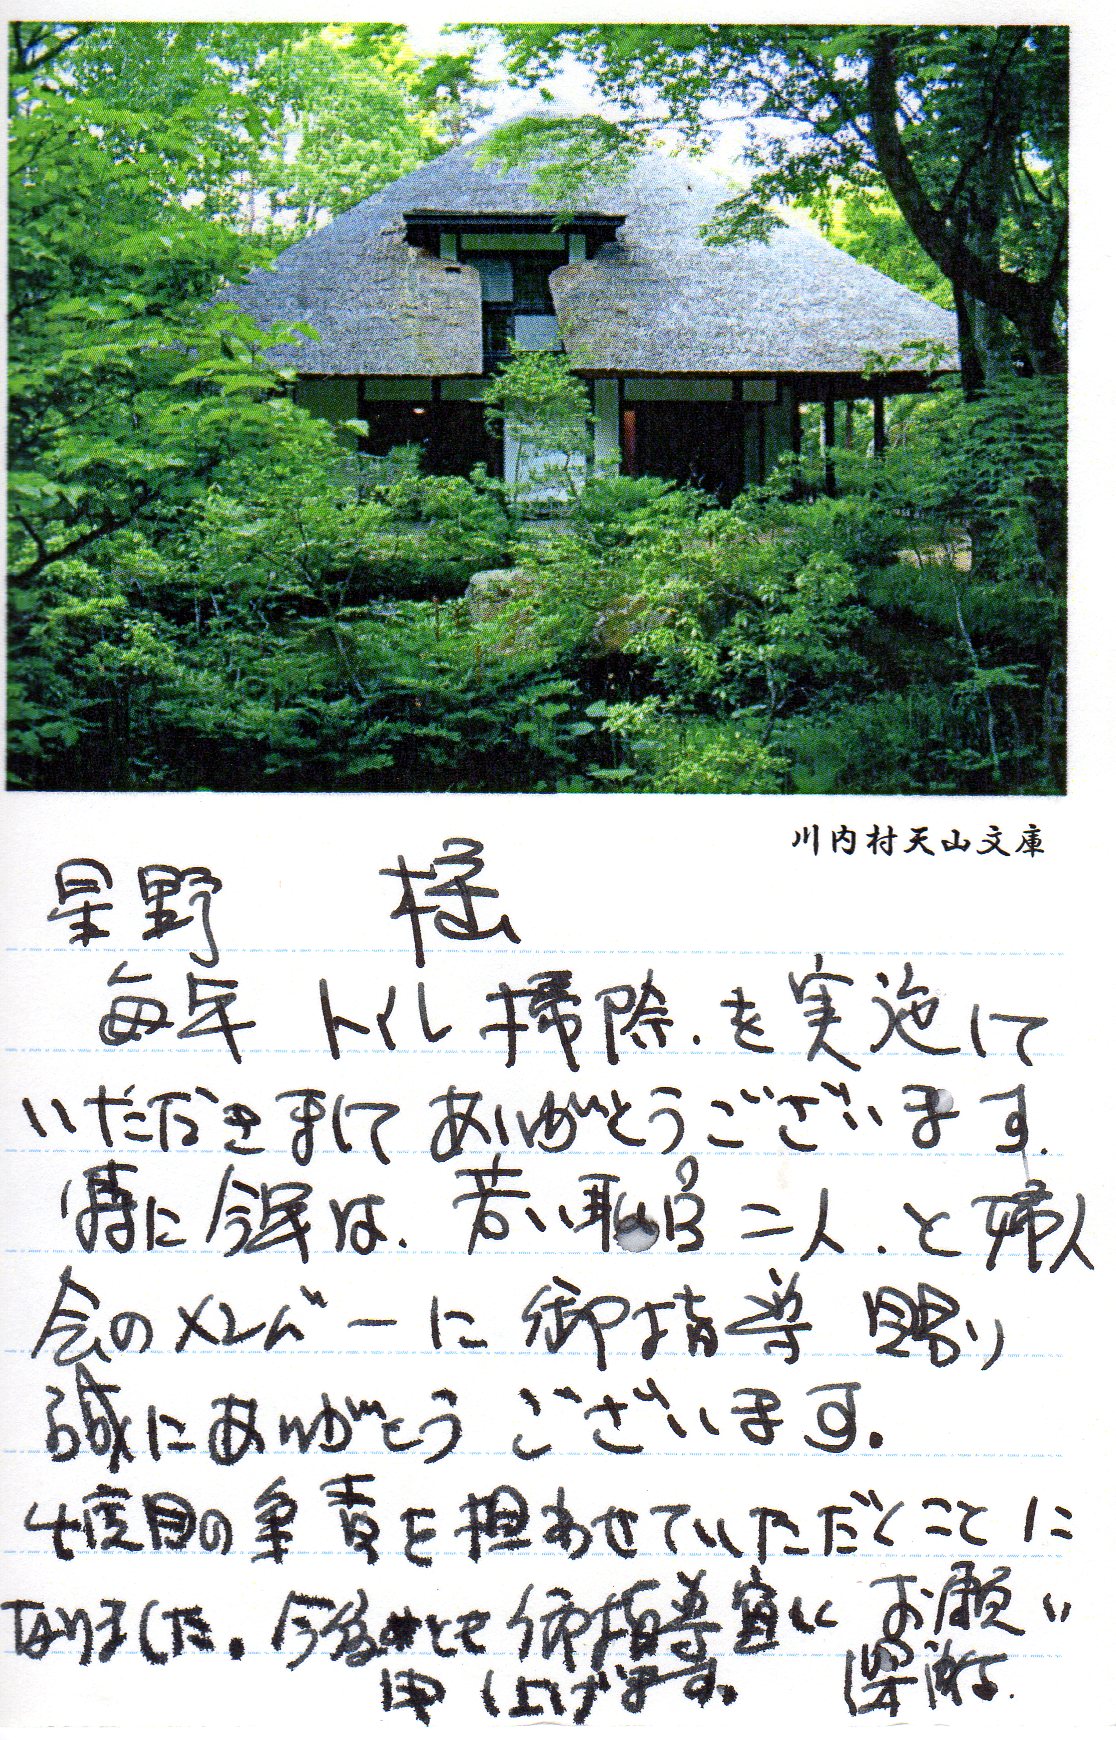 川内村天山文庫
星野 様
毎年 トイレ掃除.を実施して
いただきまして ありがとうございます.
特に今年は. 若い職員二人.と婦人
会のメンバーに御指導賜り
誠にありがとう ございます。
4度目の重責を担わせていただだくことに
なりました。今後とも御指導宜しくお願い
申し上げます。